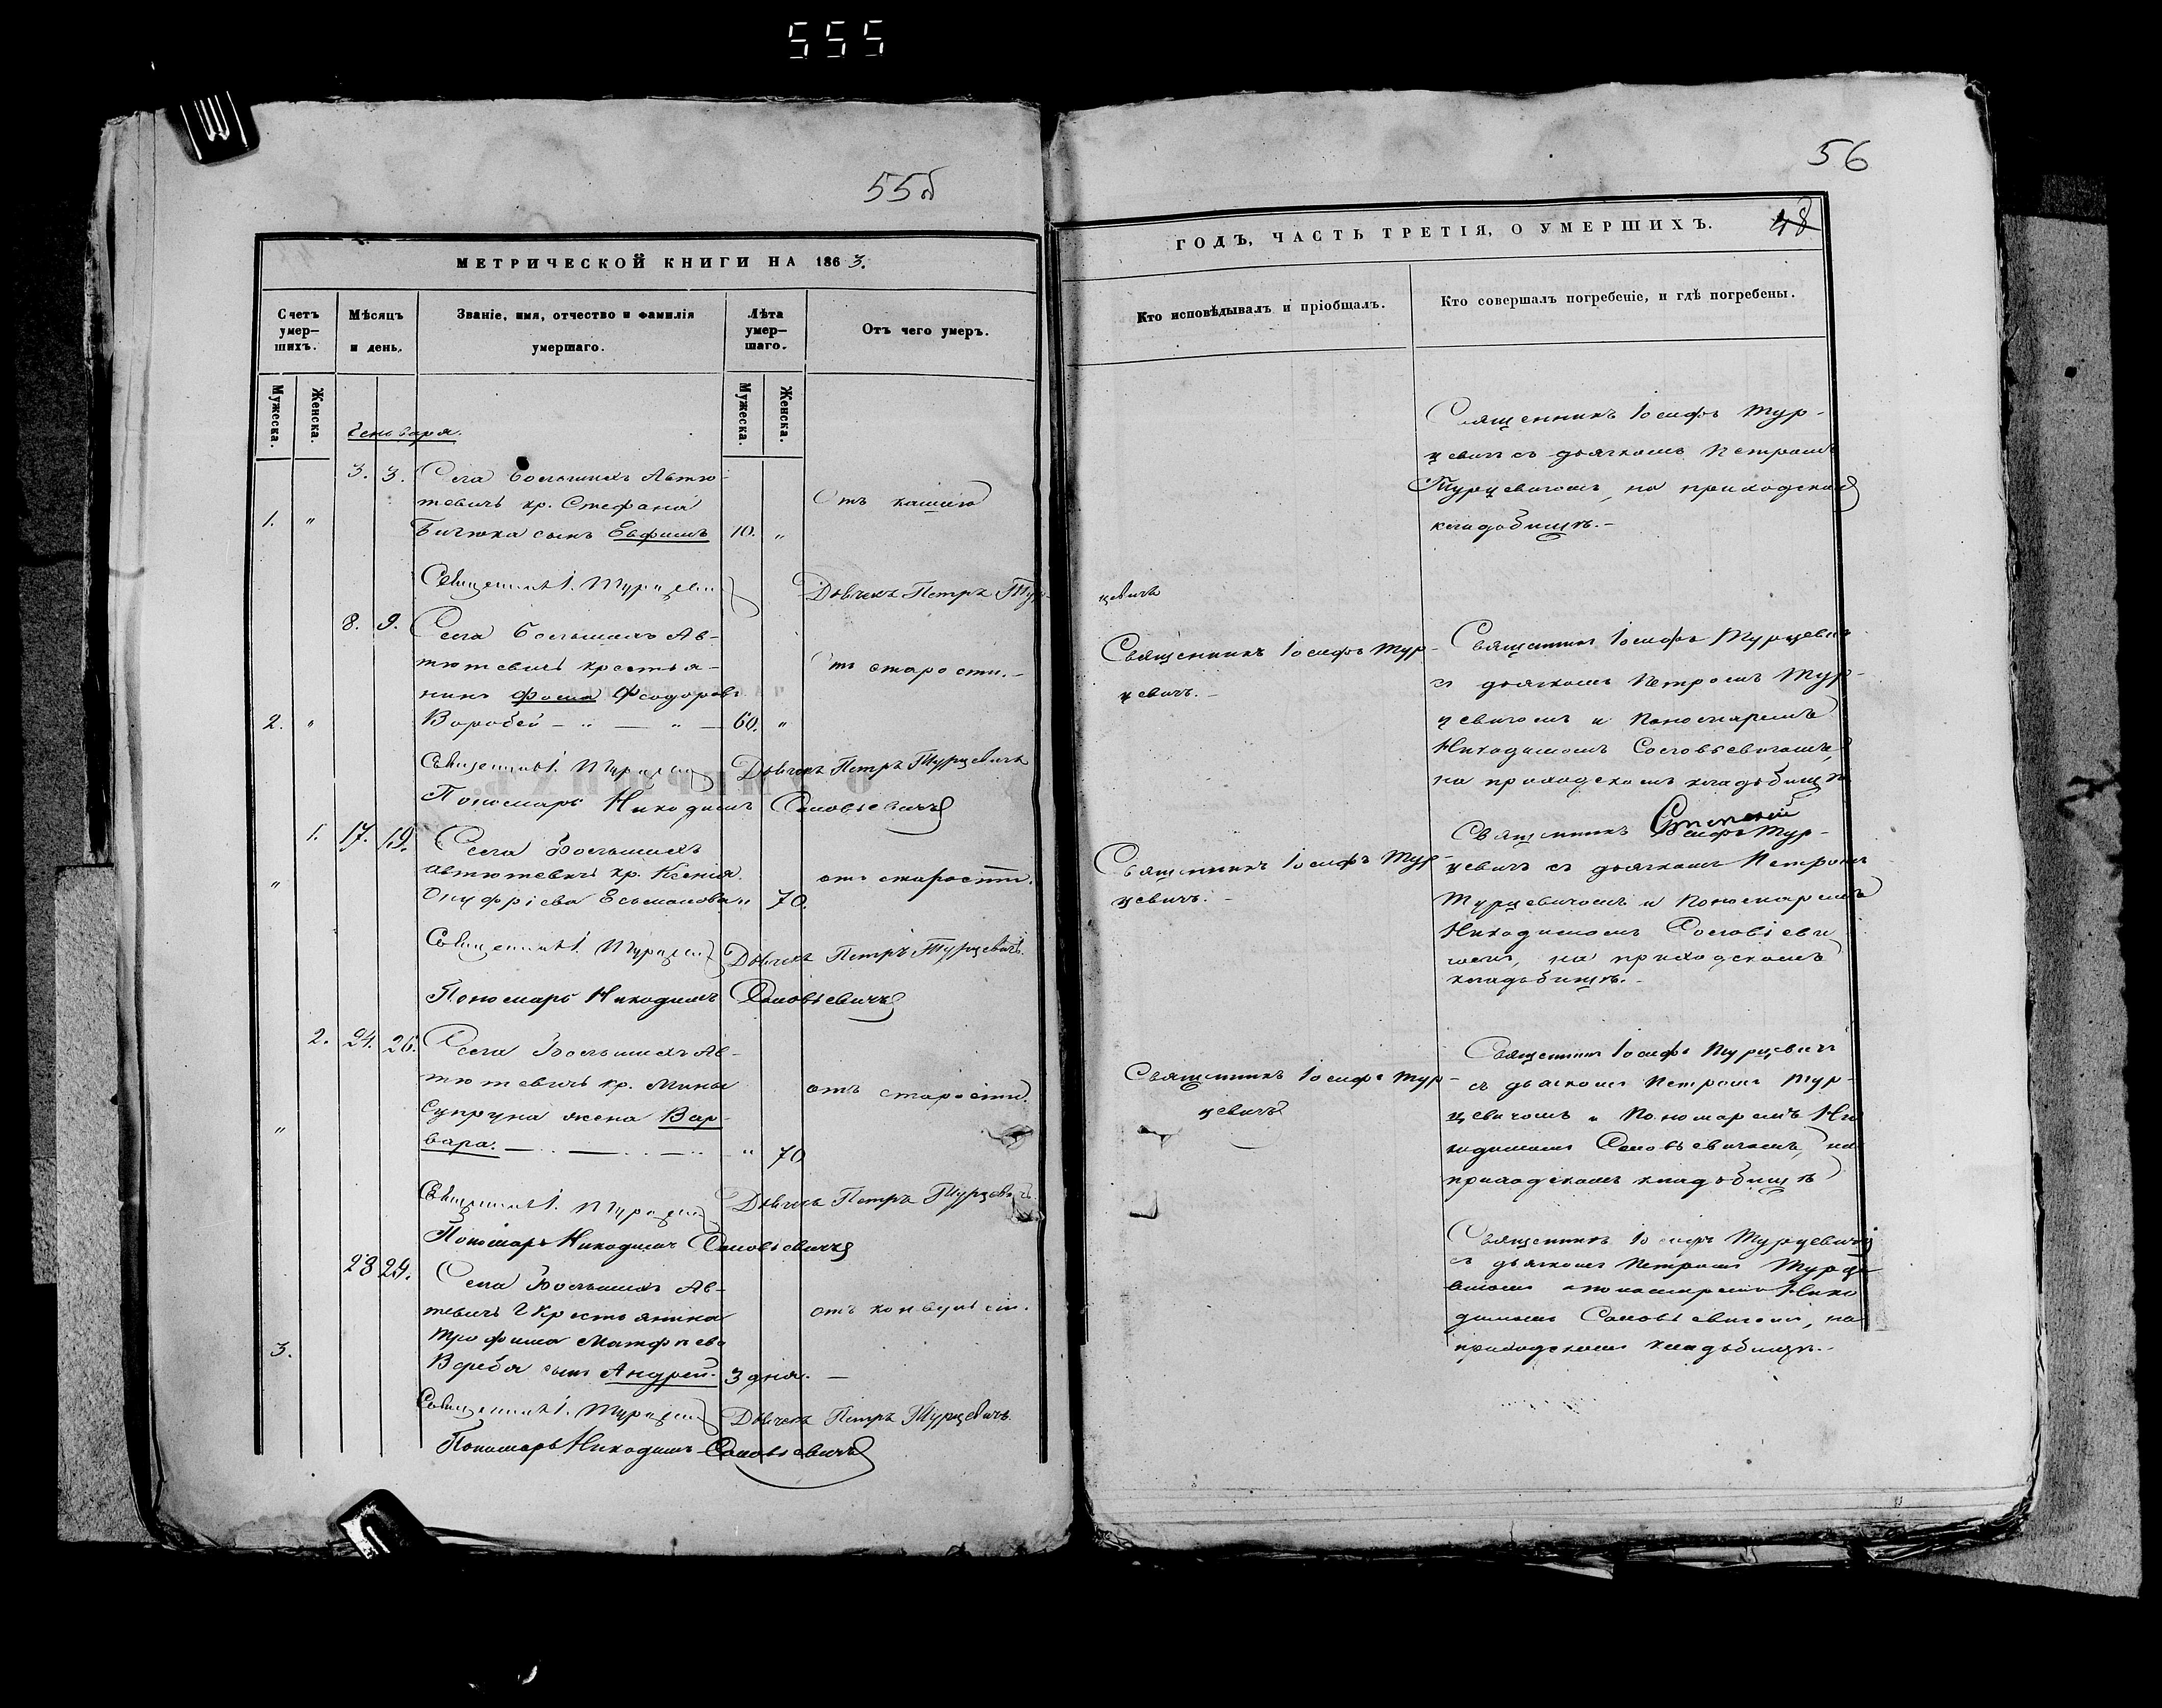 555
55б
МЕТРИЧЕСКОЙ КНИГИ НА 1863.
Счетъ умер-шихъ.
Мѣсяцъ и день.
Званіе, имя, отчество и фамилія умершаго.
Лѣта умер-шаго.
Отъ чего умеръ.
Мужеска.
Женска.
Мужеска.
Женска.
Генваря.
3. 3. Села Большихъ Автю-
тевичъ кр. Стефана
Отъ кашлю
1. " Бичюка сынъ Евфимъ 10. "
Священникъ І. Турцевичъ Дьячекъ Петръ Тур-
8. 9. Села Большихъ Ав-
тютевичъ крестья-
Отъ старости.-
нинъ Фома Феодоровъ
2. " Воробей — " — " — 60. "
Священникъ І. Турцевичъ Дьячекъ Петръ Турцевичъ
Пономарь Никодимъ Соловьевичъ
1. 17. 19. Села Большихъ
Автютевичъ кр. Ксенія
" отъ старости.
Онуфріева " 70.
Священникъ І. Турцевичъ Дьячекъ Петръ Турцевичъ.
Пономарь Никодимъ Соловьевичъ
2. 24. 26. Села Большихъ Ав-
тютевичъ кр. Мины
отъ старости.
Супруна жена Вар-
"
вара. — .. — .. — .. " 70
Священникъ І. Турцевичъ Дьячекъ Петръ Турцевичъ.
Пономарь Никодимъ Соловьевичъ
28 29. Села Большихъ Ав-
тевичъ Крестьянина
отъ конвульсіи.
Трофима Матфѣева
3.
Воребья сынъ Андрей. 3 дня. —
Священникъ І. Турцевичъ Дьячекъ Петръ Турцевичъ.
Пономарь Никодимъ Соловьевичъ
56
48
ГОДЪ, ЧАСТЬ ТРЕТІЯ, О УМЕРШИХЪ.
Кто исповѣдывалъ и пріобщалъ.
Кто совершалъ погребеніе, и гдѣ погребены.
Священникъ Іосифъ Тур-
цевичъ съ дьячкомъ Петромъ
Турцевичомъ, на приходскомъ
кладбищѣ.-
цевичъ
Священникъ Іосифъ Тур-
цевичъ.-
Священникъ Іосифъ Турцевичъ
съ дьячкомъ Петромъ Тур-
цевичомъ и Пономаремъ
Никодимомъ Соловьевичомъ,
на приходскомъ кладбищѣ
Священникъ Іосифъ Тур-
цевичъ.-
Священникъ Іосифъ Тур-
цевичъ съ дьячкомъ Петромъ
Турцевичомъ и Пономаремъ
Никодимомъ Соловьеви
чомъ, на приходскомъ
кладбищѣ.-
Священникъ Іосифъ Тур-
цевичъ
Священникъ Іосифъ Турцевичъ
съ дьячкомъ Петромъ Тур-
цевичомъ и Пономаремъ Ни
кодимомъ Соловьевичомъ, на
приходскомъ кладбищѣ
Священникъ Іосифъ Турцевичъ
съ дьячкомъ Петромъ Турце
вичомъ и пономаремъ Нико
димомъ Соловьевичомъ, на
приходскомъ кладбищѣ.-